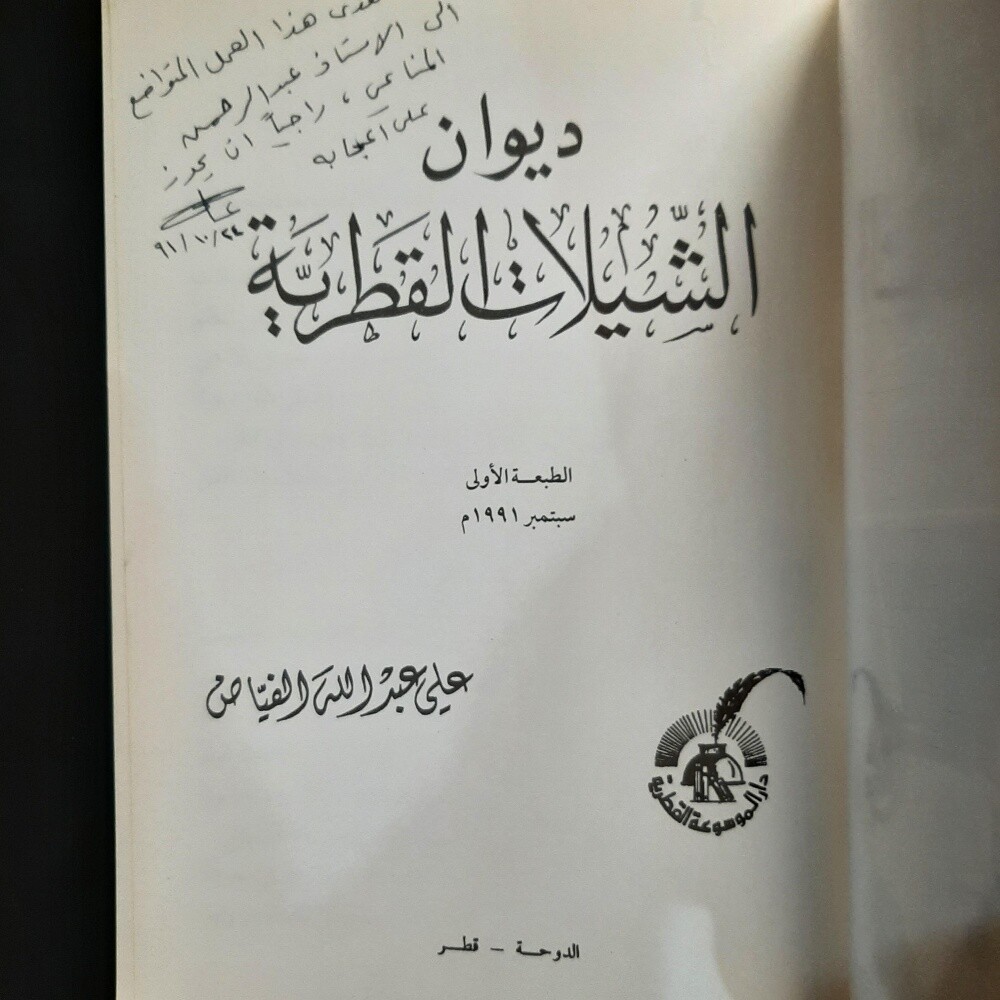 هذا العمل المتواضع
الى الاستاذ عبدالرحمن
المناعي ، راجياً ان يحوز
على اعجابه
٩١/١٠/٢٤
ديوان
الشّيلات القطريّة
الطبعة الأولى
سبتمبر ١٩٩١م
علي عبد الله الفيّاض
دار الموسوعة القطرية
الدوحة - قطر